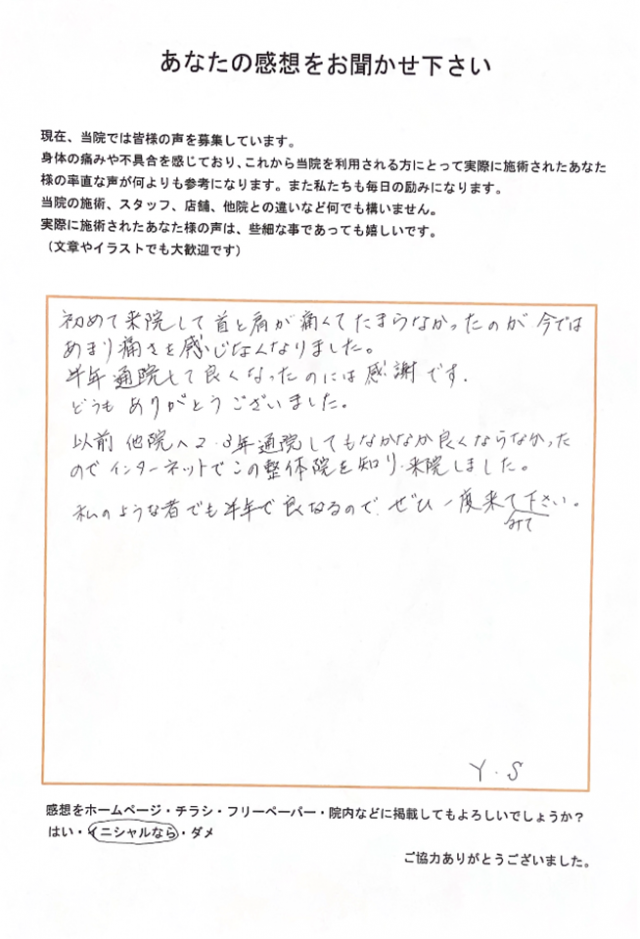 あなたの感想をお聞かせ下さい
現在、当院では皆様の声を募集しています。
身体の痛みや不具合を感じており、これから当院を利用される方にとって実際に施術されたあなた
様の率直な声が何よりも参考になります。また私たちも毎日の励みになります。
当院の施術、スタッフ、店舗、他院との違いなど何でも構いません。
実際に施術されたあなた様の声は、些細な事であっても嬉しいです。
（文章やイラストでも大歓迎です）
初めて来院して首と肩が痛くてたまらなかったのが今では
あまり痛さを感じなくなりました。
半年通院して良くなったのには感謝です.
どうもありがとうございました。
以前他院へ2・3年通院してもなかなか良くならなかった
のでインターネットでこの整体院を知り、来院しました。
私のような者でも半年で良なるので、ぜひ一度来て下さい。
みて
Y.S
感想をホームページ・チラシ・フリーペーパー・院内などに掲載してもよろしいでしょうか？
はい・イニシャルなら・ダメ
ご協力ありがとうございました。